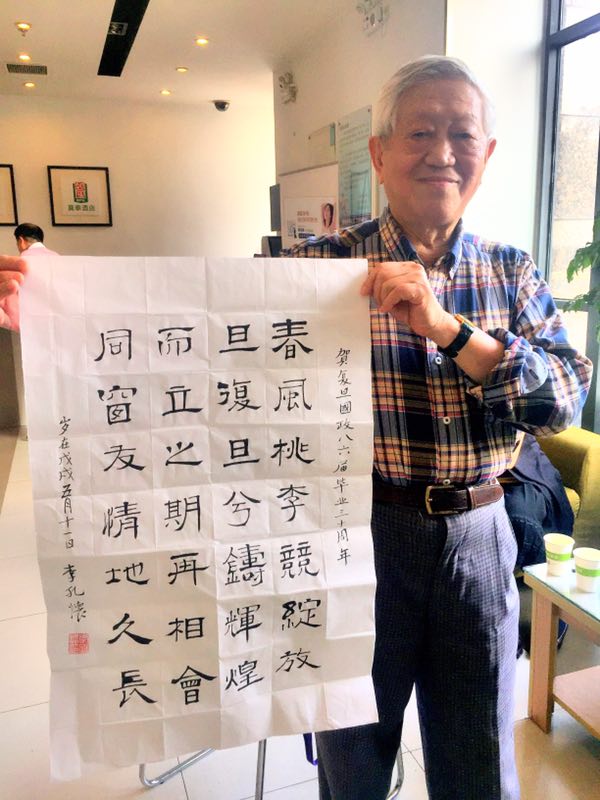 賀复旦國政八六届毕业三十周年
春風桃李競綻放
旦復旦兮鑄輝煌
而立之期再相會
同窗友情地久長
岁在戊戌五月十一日 李孔懷
莫泰酒店